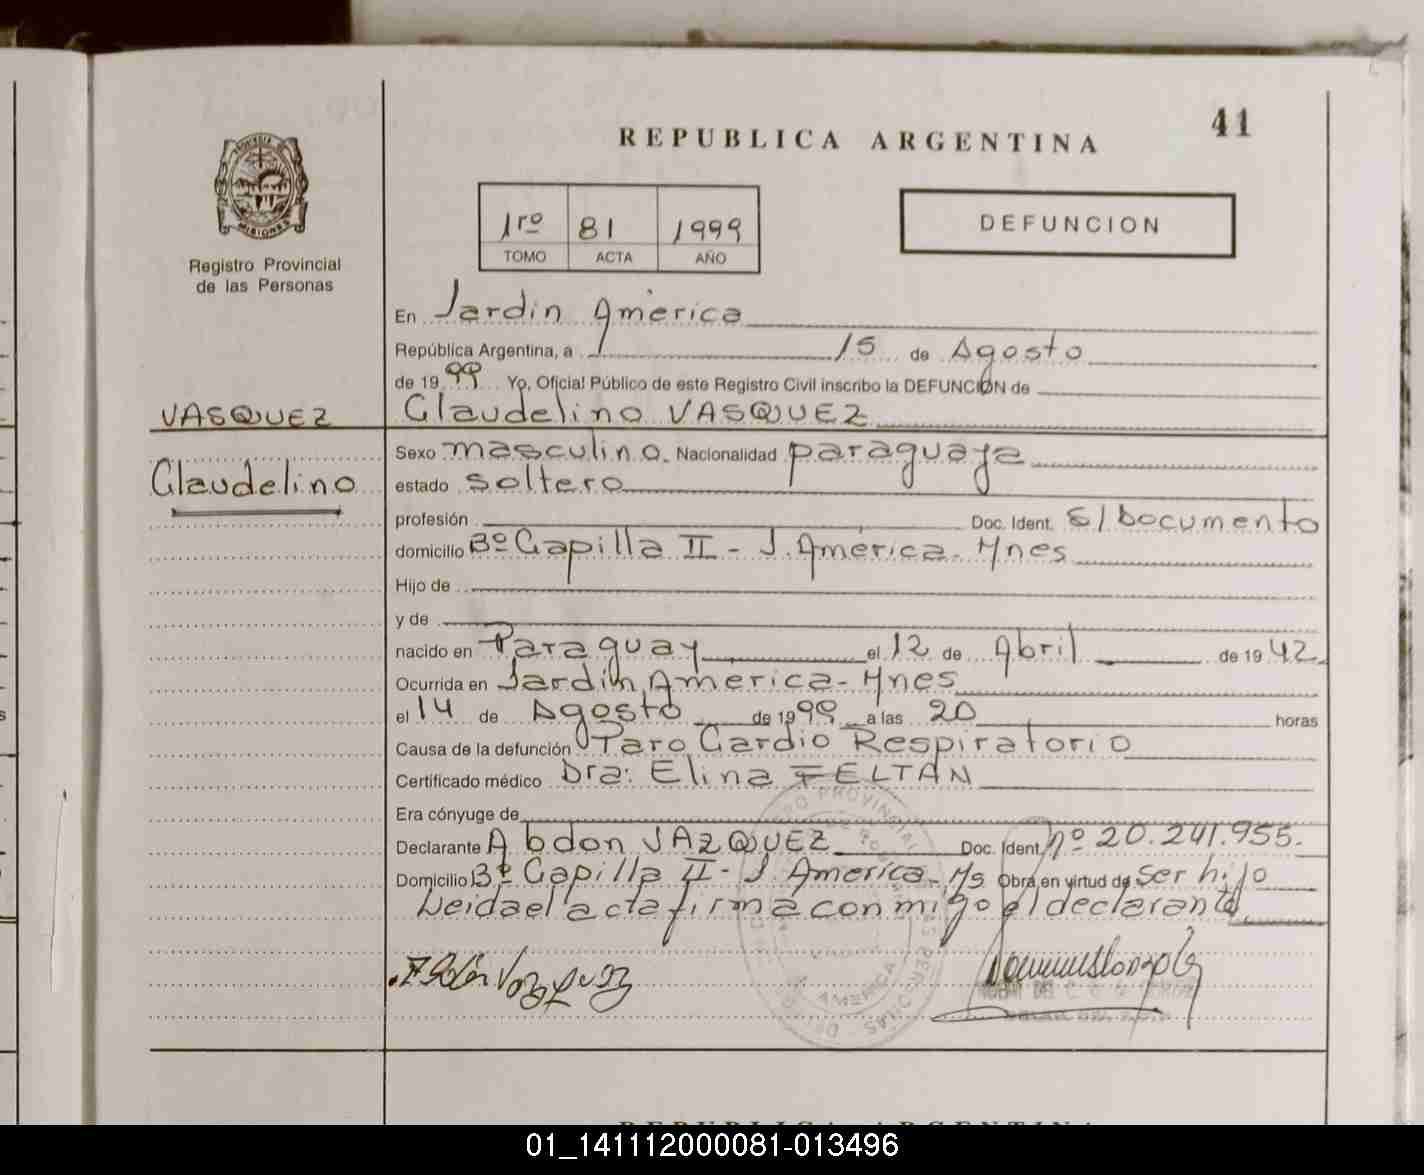 41
REPUBLICA ARGENTINA
PROVINCIA DE
MISIONES
Registro Provincial
de las Personas
1ro 81 1999
TOMO ACTA AÑO
DEFUNCION
En Jardin America
República Argentina, a 15 de Agosto
de 1999 Yo, Oficial Público de este Registro Civil inscribo la DEFUNCION de
VASQUEZ
Claudelino
Claudelino VASQUEZ
Sexo masculino. Nacionalidad paraguaya
estado soltero
profesión Doc. Ident. S/Documento
domicilio Bº Capilla II - J. América - Mnes
Hijo de
y de
nacido en Paraguay el 12 de Abril de 1942
Ocurrida en Jardin America - Mnes
el 14 de Agosto de 1999 a las 20 horas
Causa de la defunción Paro Cardio Respiratorio
Certificado médico Dra: Elina FELTAN
Era cónyuge de
Declarante Abdon VAZQUEZ Doc. Ident. Nº 20.241.955.
Domicilio Bº Capilla II - J. America - Ms Obra en virtud de ser hijo
Leida el acta firma conmigo el declarante
REPUBLICA ARGENTINA
01_141112000081-013496